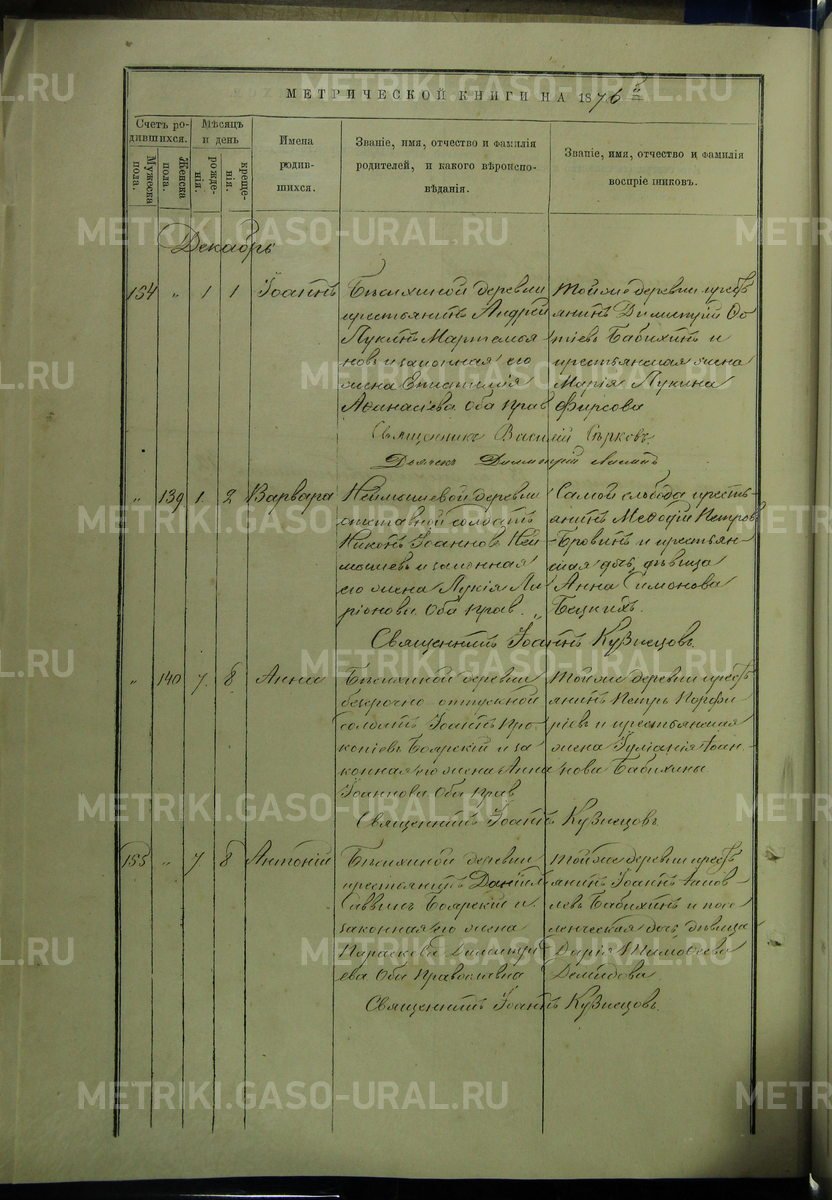 МЕТРИЧЕСКОЙ КНИГИ НА 1876 г.
Счетъ родившихся.
Мужеска пола.
Женска пола.
Мѣсяцъ и день
рожденія.
крещенія.
Имена родившихся.
Званіе, имя, отчество и фамилія родителей, и какого вѣроисповѣданія.
Званіе, имя, отчество и фамилія воспріемниковъ.
Декабрь
154 „ 1 1 Іоаннъ
деревни
крестьянинъ Андрей
Лукинъ Мартемья
новъ и законная его
жена Епистимія
Аѳанасіева Оба Прав
Тойже деревни крест
янинъ Димитрій
Бабихинъ и
крестьянская жена
Марія Лукина
Фирсова
Священникъ Василій
Дьячекъ Димитрій
„ 139 1 2 Варвара
деревни
отставной солдатъ
Никонъ Іоанновъ Ней
мышевъ и законная
его жена Лукія Ла
ріонова Оба Прав. „
Самой слободы кресть
янинъ Меѳодій Петровъ
Бровинъ и крестьян
ская дочь, дѣвица
Анна Симонова
Бецкихъ.
Священникъ Іоаннъ Кузнецовъ.
„ 140 7 8 Анна
деревни
безсрочно отпускной
солдатъ Іоаннъ Про
копіевъ Боярскій и за
конная его жена Анна
Іоаннова Оба Прав
Тойже деревни крест
янинъ Петръ Порфи
ріевъ и крестьянская
жена Іуліанія Іоан
нова Бабихины.
Священникъ Іоаннъ Кузнецовъ
155 „ 7 8 Антоній
деревни
крестьянинъ Даніил
Саввинъ Боярскій и
законная его жена
Параскева Димитрі
ева Оба Православна
Тойже деревни крест
янинъ Іоаннъ Іаков
левъ Бабихинъ и посе
ленческая дочь, дѣвица
Дарія Тимоѳеева
Демидова
Священникъ Іоаннъ Кузнецовъ.
METRIKI.GASO-URAL.RU